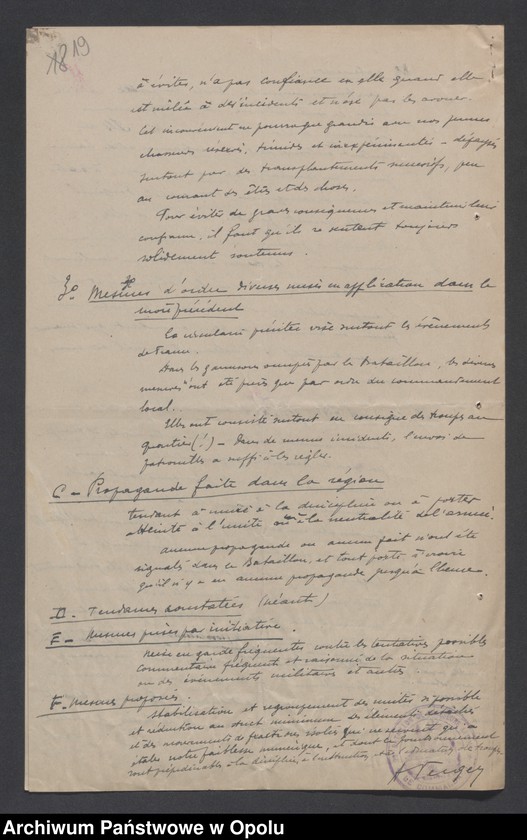 1819
à éviter, n'a pas confiance en elle quand elle
est mêlée à des incidents et n'ose pas les avouer.
Cet inconvénient ne pourra que grandir avec nos jeunes
chasseurs timides et inexpérimentés - dépaysés
surtout par des transplantements successifs, peu
au courant des êtres et des choses.
Pour éviter de graves conséquences et maintenir leur
confiance, il faut qu'ils se sentent toujours
solidement soutenus.
3° Mesures d'ordre diverses mises en application dans le
mois précédent
La circulaire précitée vise surtout les évènements
de France.
Dans les garnisons occupées par le Bataillon, les diverses
mesures n'ont été prises que par ordre du commandement
local.
Elles ont consisté surtout en consigne des troupes au
quartier (!) - Dans de menus incidents, l'envoi de
patrouilles a suffi à les régler.
C - Propagande faite dans la région
tendant à nuire à la discipline ou à porter
atteinte à l'unité ou à la neutralité de l'armée.
Aucune propagande ou aucun fait n'ont été
signalés dans ce Bataillon, et tout porte à croire
qu'il n'y a eu aucune propagande jusqu'à l'heure.
D - Tendances constatées (néant)
E - Mesures prises par initiative.
Mise en garde fréquentes contre les tentatives possibles
commentaires fréquents et raisonnés de la situation
ou des évènements militaires et autres
F - Mesures proposées.
Stabilisation et regroupement des unités si possible
et réduction au strict minimum des éléments détachés
et des mouvements de fractions isolées qui ne servent qu'à
étaler notre faiblesse numérique, et dont le fonctionnement
sont préjudiciables à la discipline, à l'instruction et à l'éducation de la troupe.
Archiwum Państwowe w Opolu